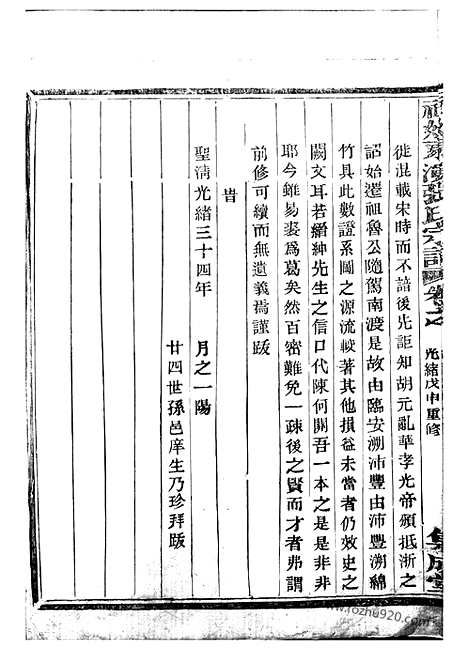 徙混載宋時而不諳後先詎知胡元亂華孝光帝頒抵浙之
詔始遷祖魯公隨駕南渡是故由臨安溯沛豐由沛豐溯綿
竹具此數證系圖之源流較著其他損益未當者仍效史之
闕文耳若縉紳先生之信口代陳何關吾一本之是是非非
耶今雖易裘爲葛矣然百密難免一疎後之賢而才者弗謂
前修可續而無遺義焉謹跋
旹
聖清光緒三十四年 月之一陽
廿四世孫邑庠生乃珍拜跋
張氏宗譜
光緒戊申重修
集成堂
www.rozhu920.com